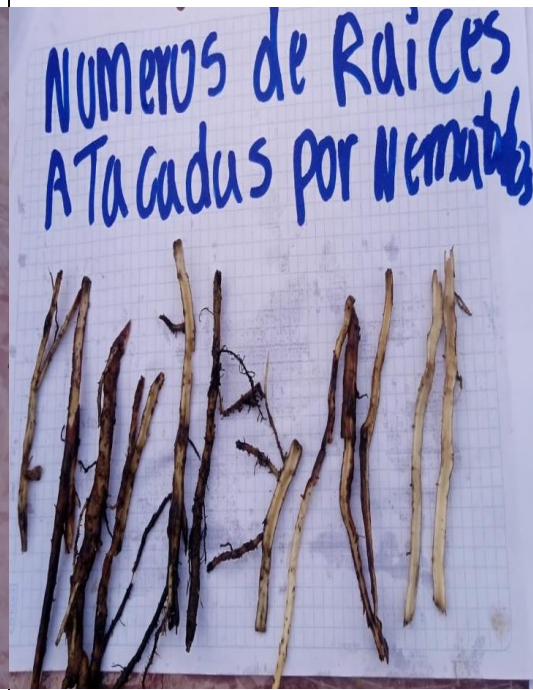 Numeros de Raices
ATacadus por Nematodos